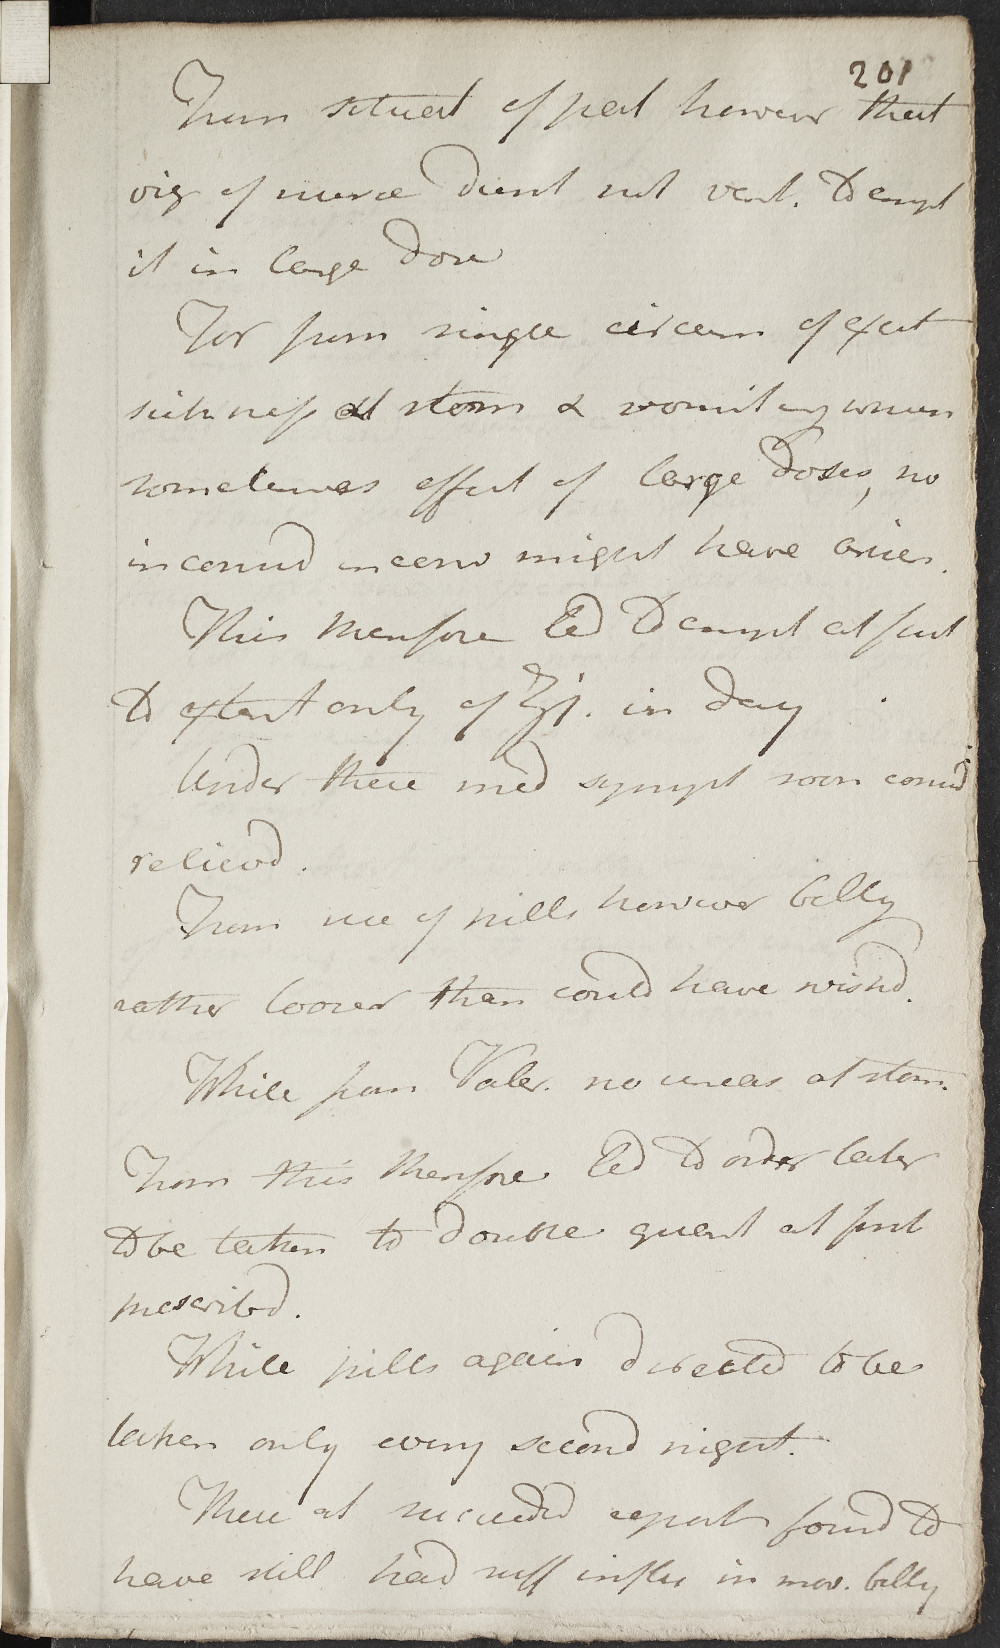 201
From situat of pat however that
vig of nurse dient not vent. To empl
it in large dose
For from single circum of excit
sickness at stom & vomiting when
sometimes effect of large doses, no
inconsid incon might have arisen.
This therefore led to empl at first
to extent only of ʒj. in day
Under these med sympt soon consid
relievd.
From use of pills however belly
rather looser than could have wishd.
While from Valer. no uneas at stom.
From this therefore led to order latter
to be taken to double quant at first
prescribd.
While pills again directed to be
taken only every second night.
These at succeedd report found to
have still had suff influ in mov. belly